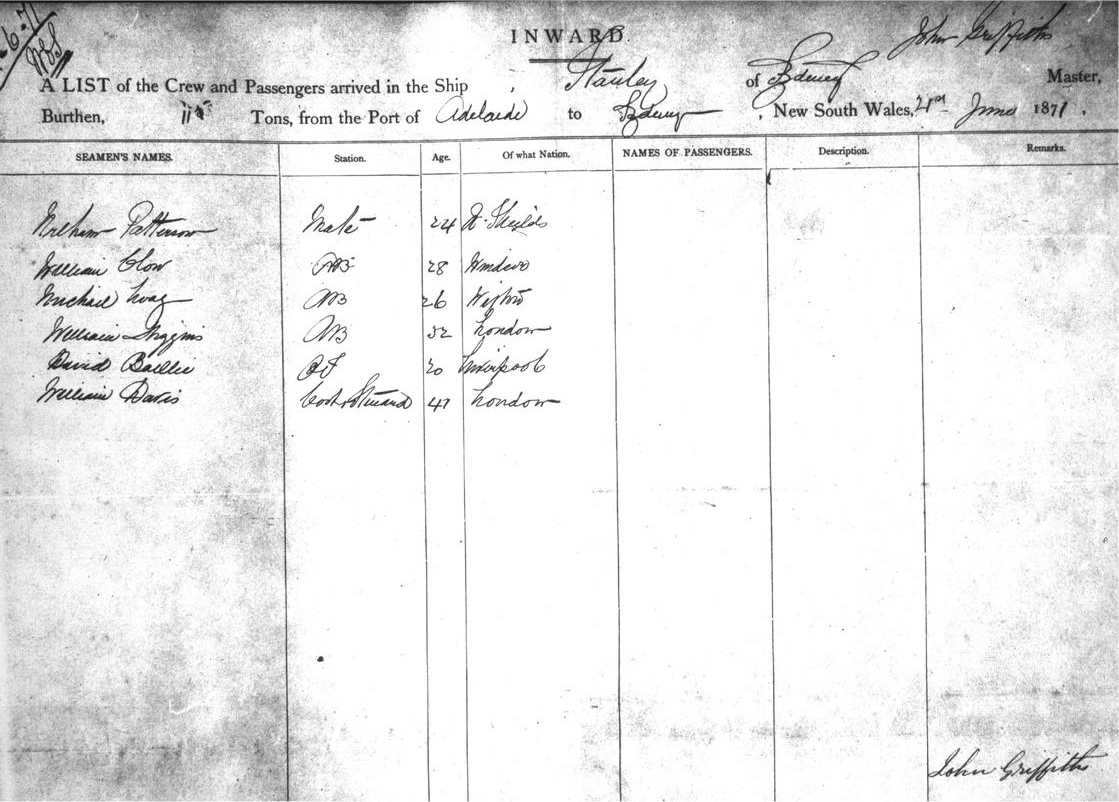 6-71
INWARD.
John Griffiths
A LIST of the Crew and Passengers arrived in the Ship Stanley of Sydney Master,
Burthen, Tons, from the Port of Adelaide to Sydney, New South Wales, June 1871.
SEAMEN'S NAMES. Station. Age. Of what Nation. NAMES OF PASSENGERS. Description. Remarks.
Patterson Mate 24 Shields
William Clow AB 28
Michael AB 26
William Higgins AB 32 London
David Baillie 20 Liverpool
William Davis Cook & Steward 47 London
John Griffiths